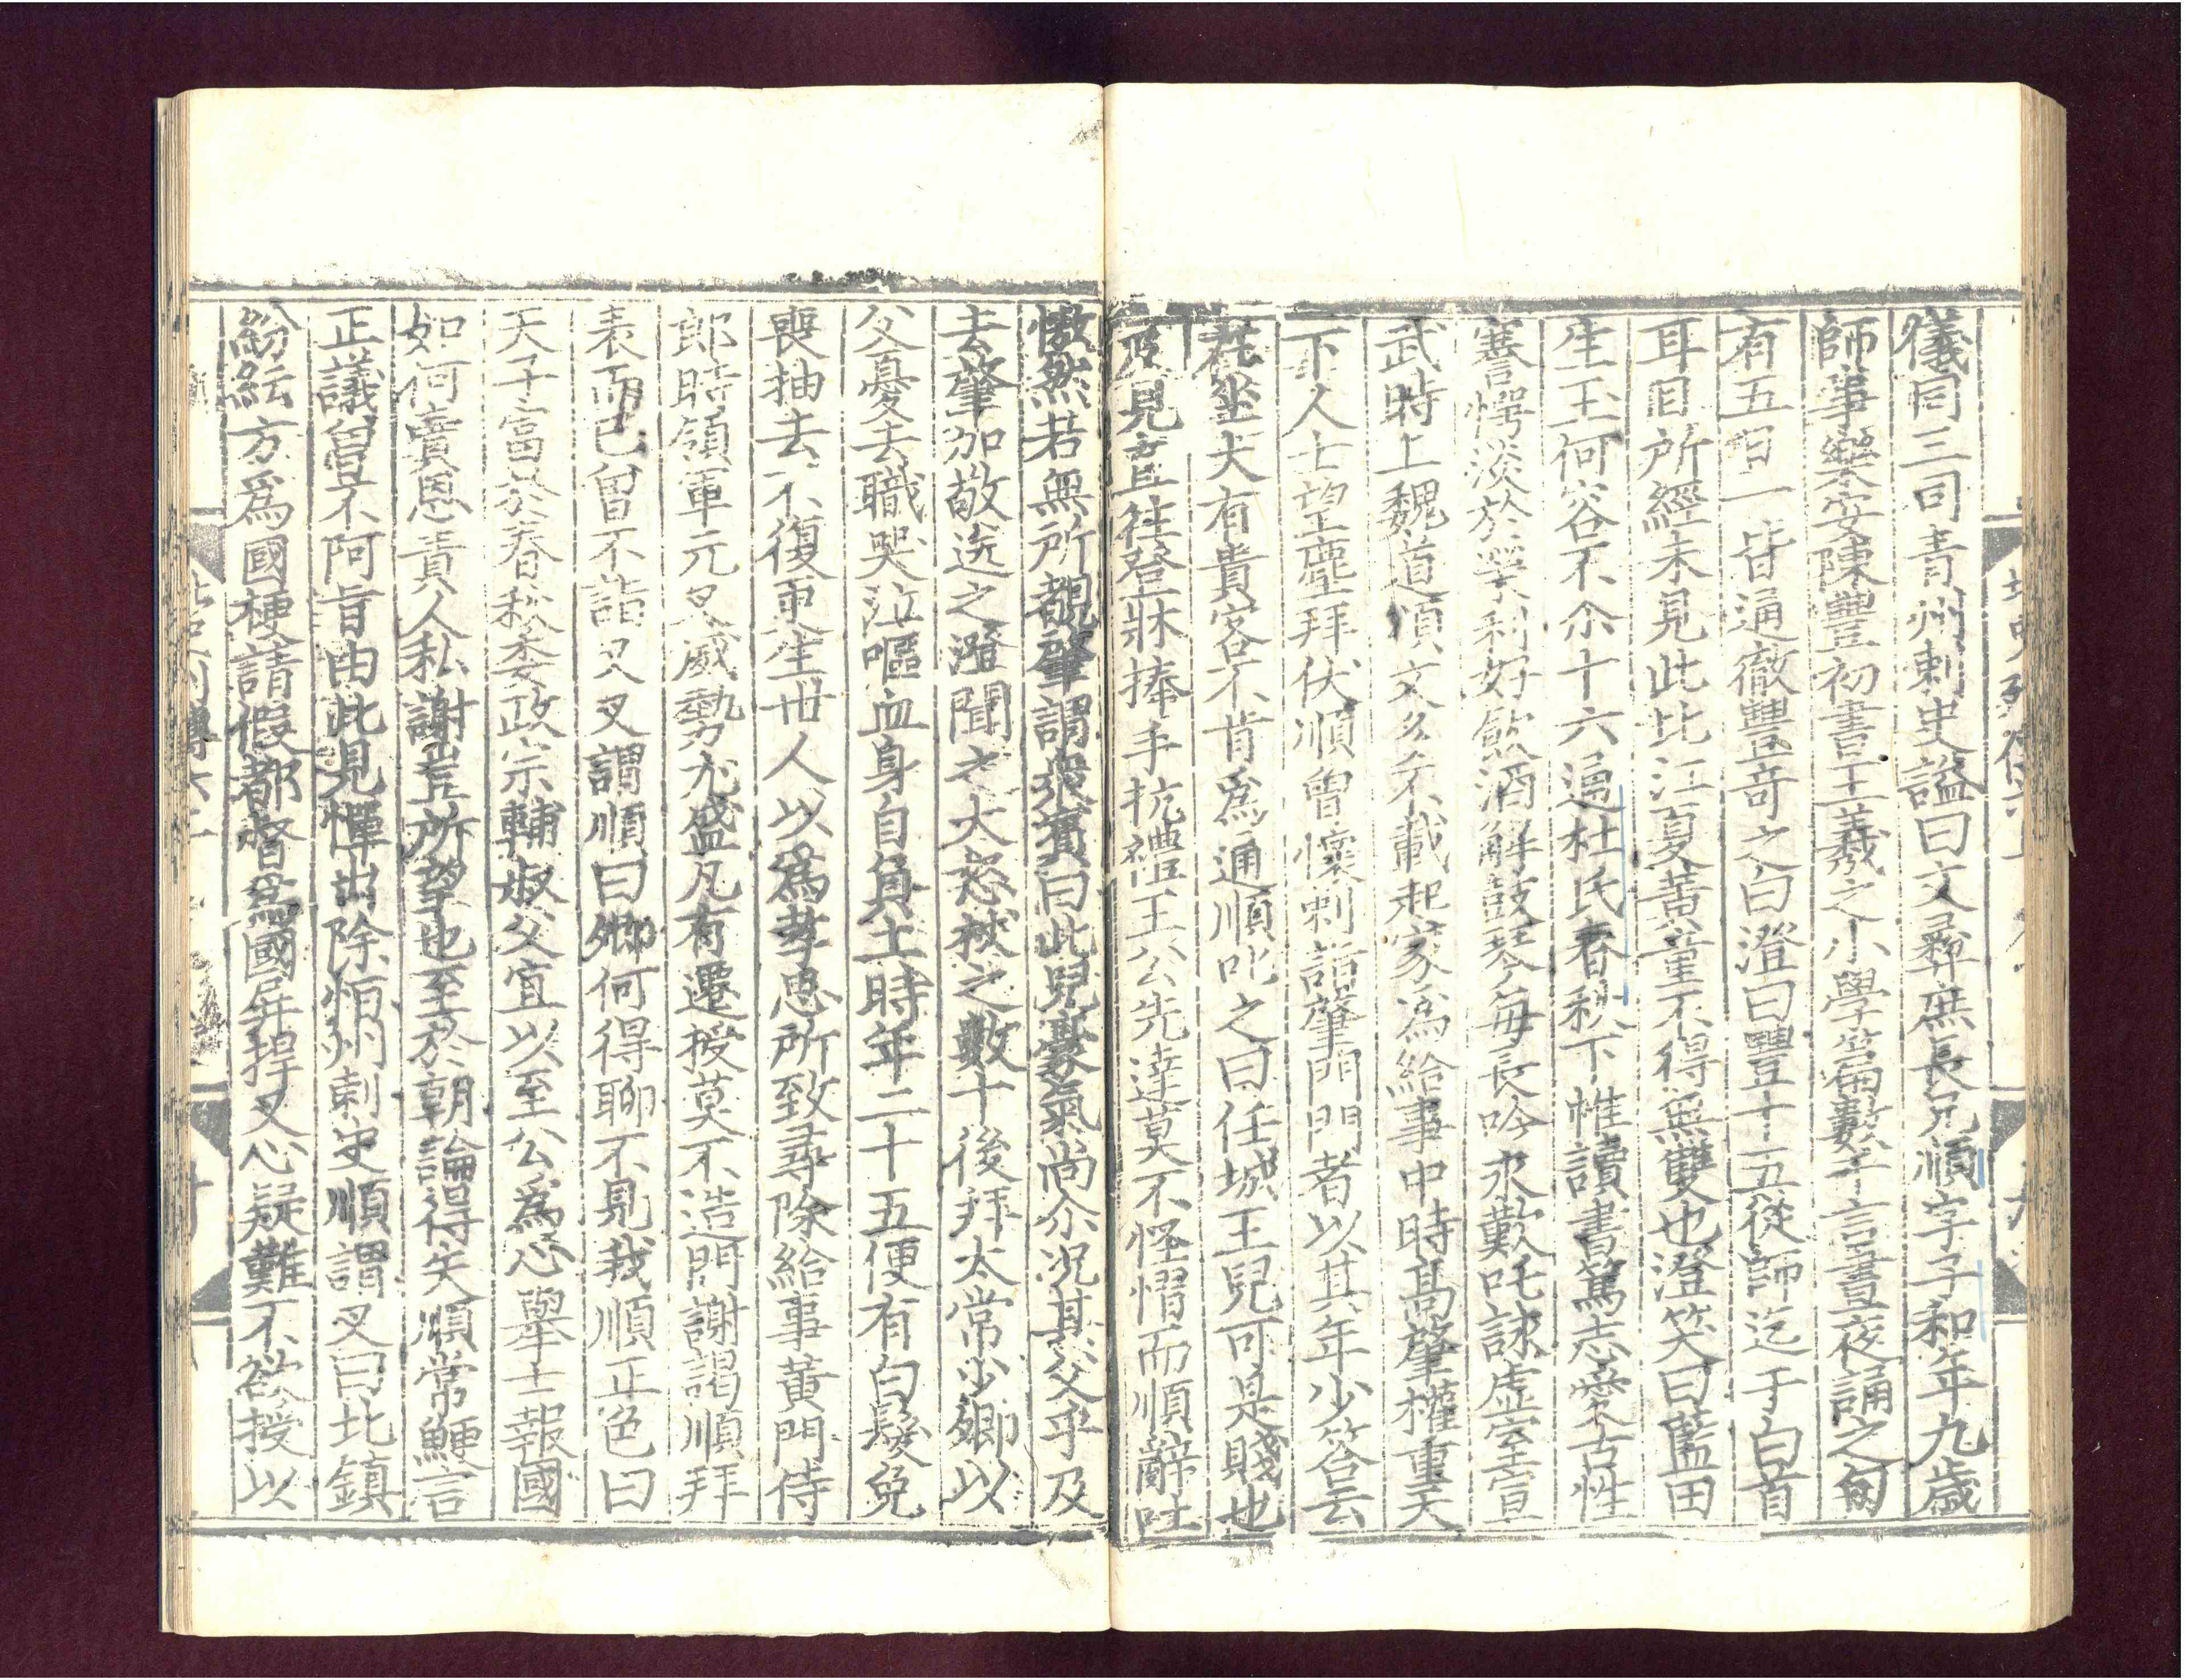 儀同三司青州刺史謚曰文彞庶長兄順字子和年九歲
師事樂安陳豐初書王羲之小學篇數千言晝夜誦之旬
有五日一皆通徹豐奇之白澄曰豐十五從師迄于白首
耳目所經未見此比江夏黃童不得無雙也澄笑曰藍田
生玉何容不尒十六通杜氏春秋下帷讀書篤志愛古性
謇愕淡於榮利好飲酒解鼓琴每長吟永歎吒詠虛室宣
武時上魏道頌文多不載起家爲給事中時高肇權重天
下人士望塵拜伏順曾懷刺詣肇門門者以其年少答云
在坐大有貴客不肯爲通順叱之曰任城王兒可是賤也
及見直往登牀捧手抗禮王公先達莫不怪慴而順辭吐
慠然若無所覩肇謂衆賓曰此兒豪氣尚尒况其父乎及
去肇加敬送之澄聞之大怒杖之數十後拜太常少卿以
父憂去職哭泣嘔血身自負土時年二十五便有白髮免
喪抽去不復更生世人以爲孝思所致尋除給事黃門侍
郎時領軍元叉威勢尤盛凡有遷授莫不造門謝謁順拜
表而已曾不詣叉叉謂順曰卿何得聊不見我順正色曰
天子富於春秋委政宗輔叔父宜以至公爲心舉士報國
如何賣恩責人私謝豈所望也至於朝論得失順常鯁言
正議曾不阿旨由此見憚出除恒州刺史順謂叉曰北鎮
紛紜方爲國梗請假都督爲國屏捍叉心疑難不欲授以